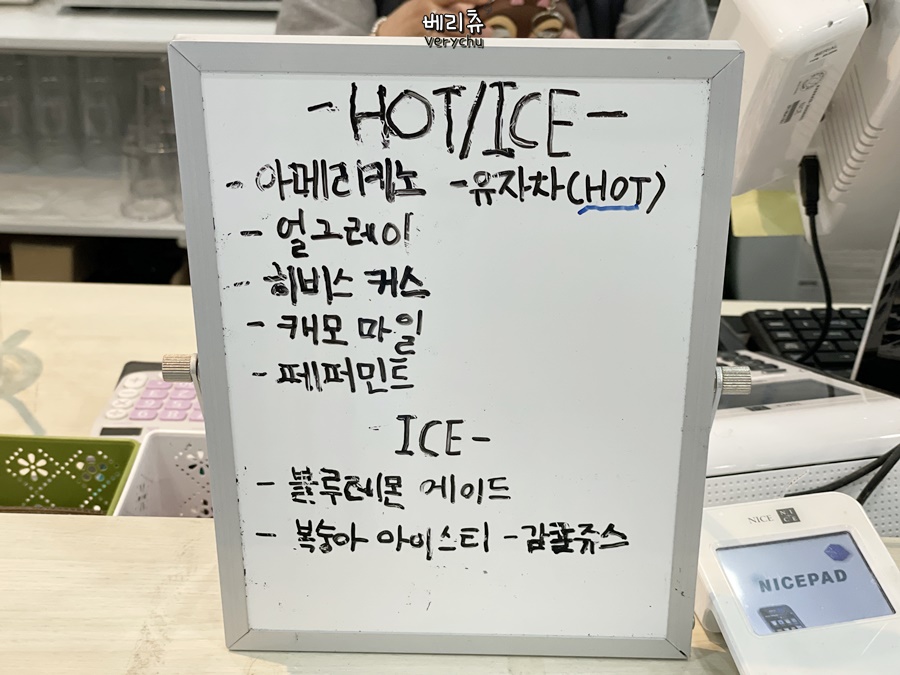 베리츄
verychu
-HOT/ICE-
- 아메리카노 - 유자차(HOT)
- 얼그레이
- 히비스 커스
- 캐모 마일
- 페퍼민트
ICE-
- 블루레몬 에이드
- 복숭아 아이스티 - 감귤쥬스
NICE
NICEPAD